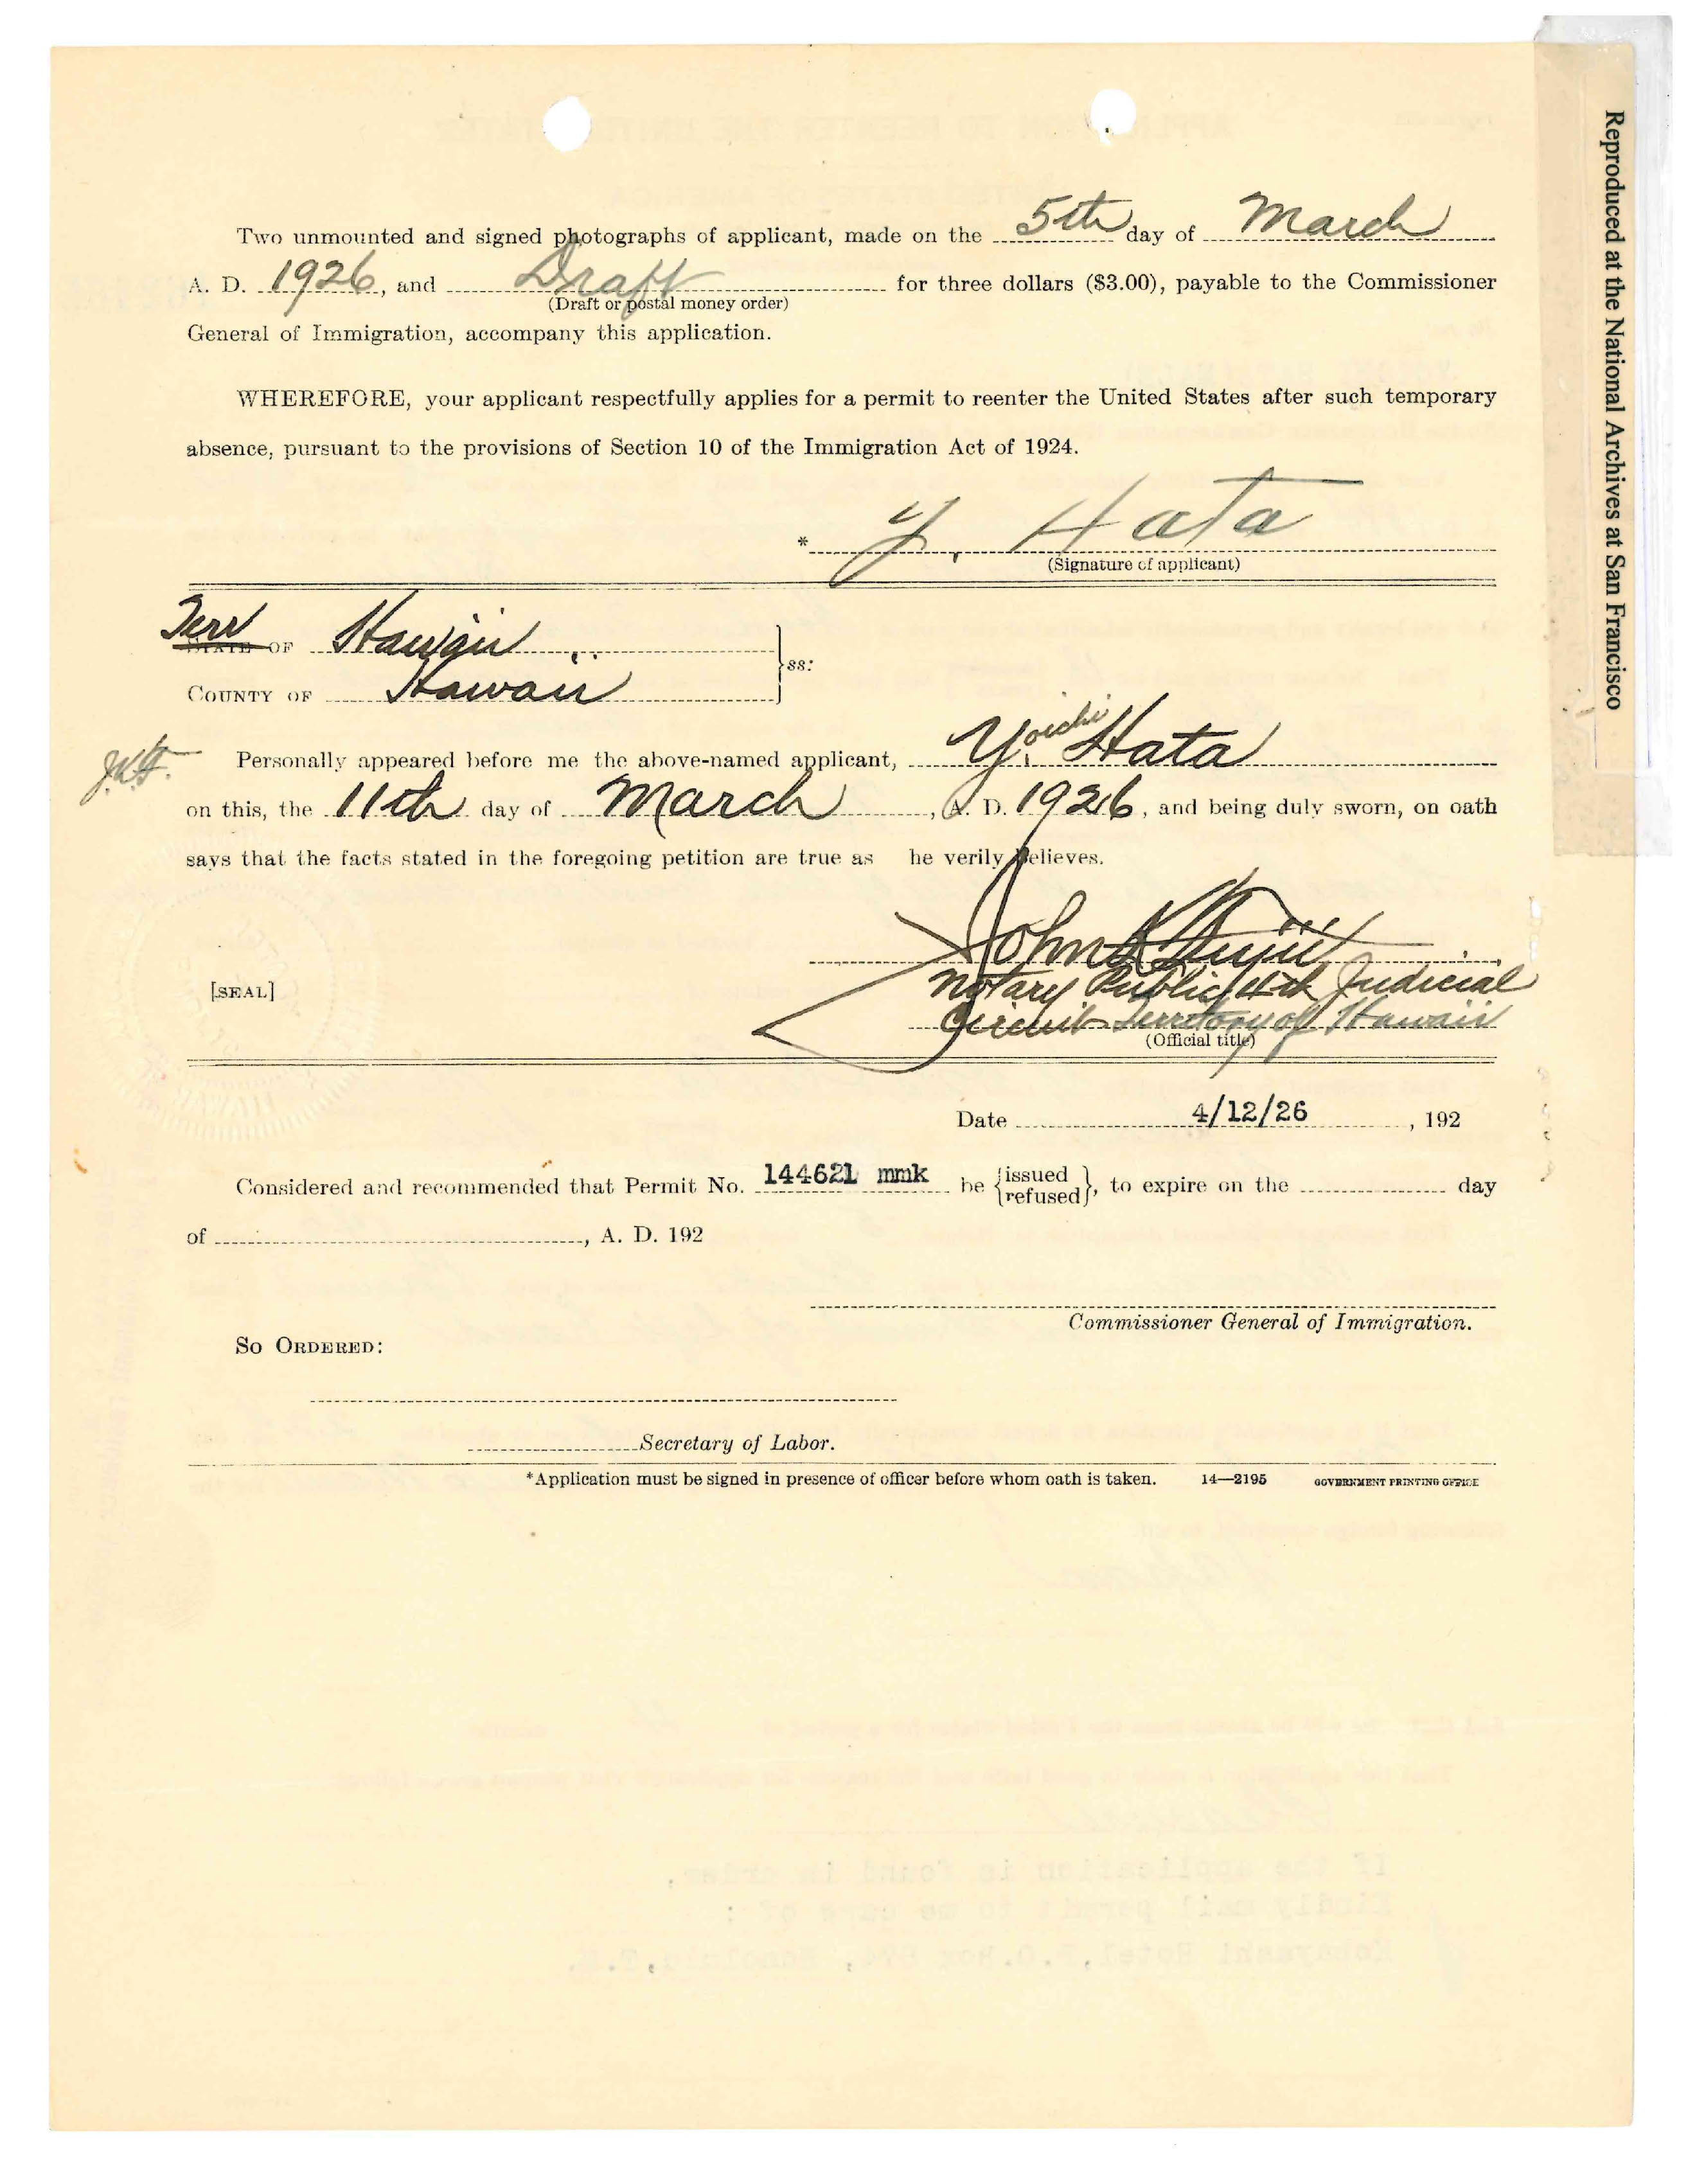 Two unmounted and signed photographs of applicant, made on the 5th day of March
A. D. 1926, and Draft for three dollars ($3.00), payable to the Commissioner
(Draft or postal money order)
General of Immigration, accompany this application.
WHEREFORE, your applicant respectfully applies for a permit to reenter the United States after such temporary
absence, pursuant to the provisions of Section 10 of the Immigration Act of 1924.
* Y. Hata
(Signature of applicant)
Terr
STATE OF Hawaii
ss:
COUNTY OF Hawaii
J.K.F. Personally appeared before me the above-named applicant, Yoichi Hata
on this, the 11th day of March, A. D. 1926, and being duly sworn, on oath
says that the facts stated in the foregoing petition are true as he verily believes.
John K Fujii
Notary Public, 4th Judicial
[SEAL]
Circuit Territory of Hawaii
(Official title)
Date 4/12/26, 192
Considered and recommended that Permit No. 144621 mmk be {issued refused}, to expire on the day
of , A. D. 192
Commissioner General of Immigration.
SO ORDERED:
Secretary of Labor.
*Application must be signed in presence of officer before whom oath is taken. 14—2195 GOVERNMENT PRINTING OFFICE
Reproduced at the National Archives at San Francisco